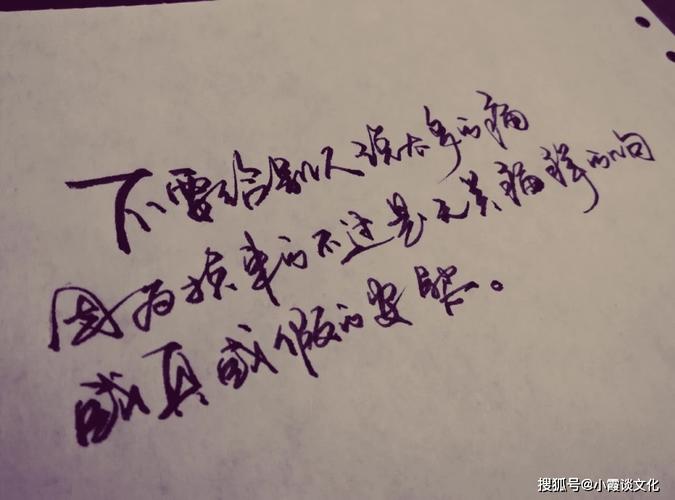 不要给别人说太多的痛
因为换来的不过是无关痛痒的
或真或假的安慰。
搜狐号@小霞谈文化